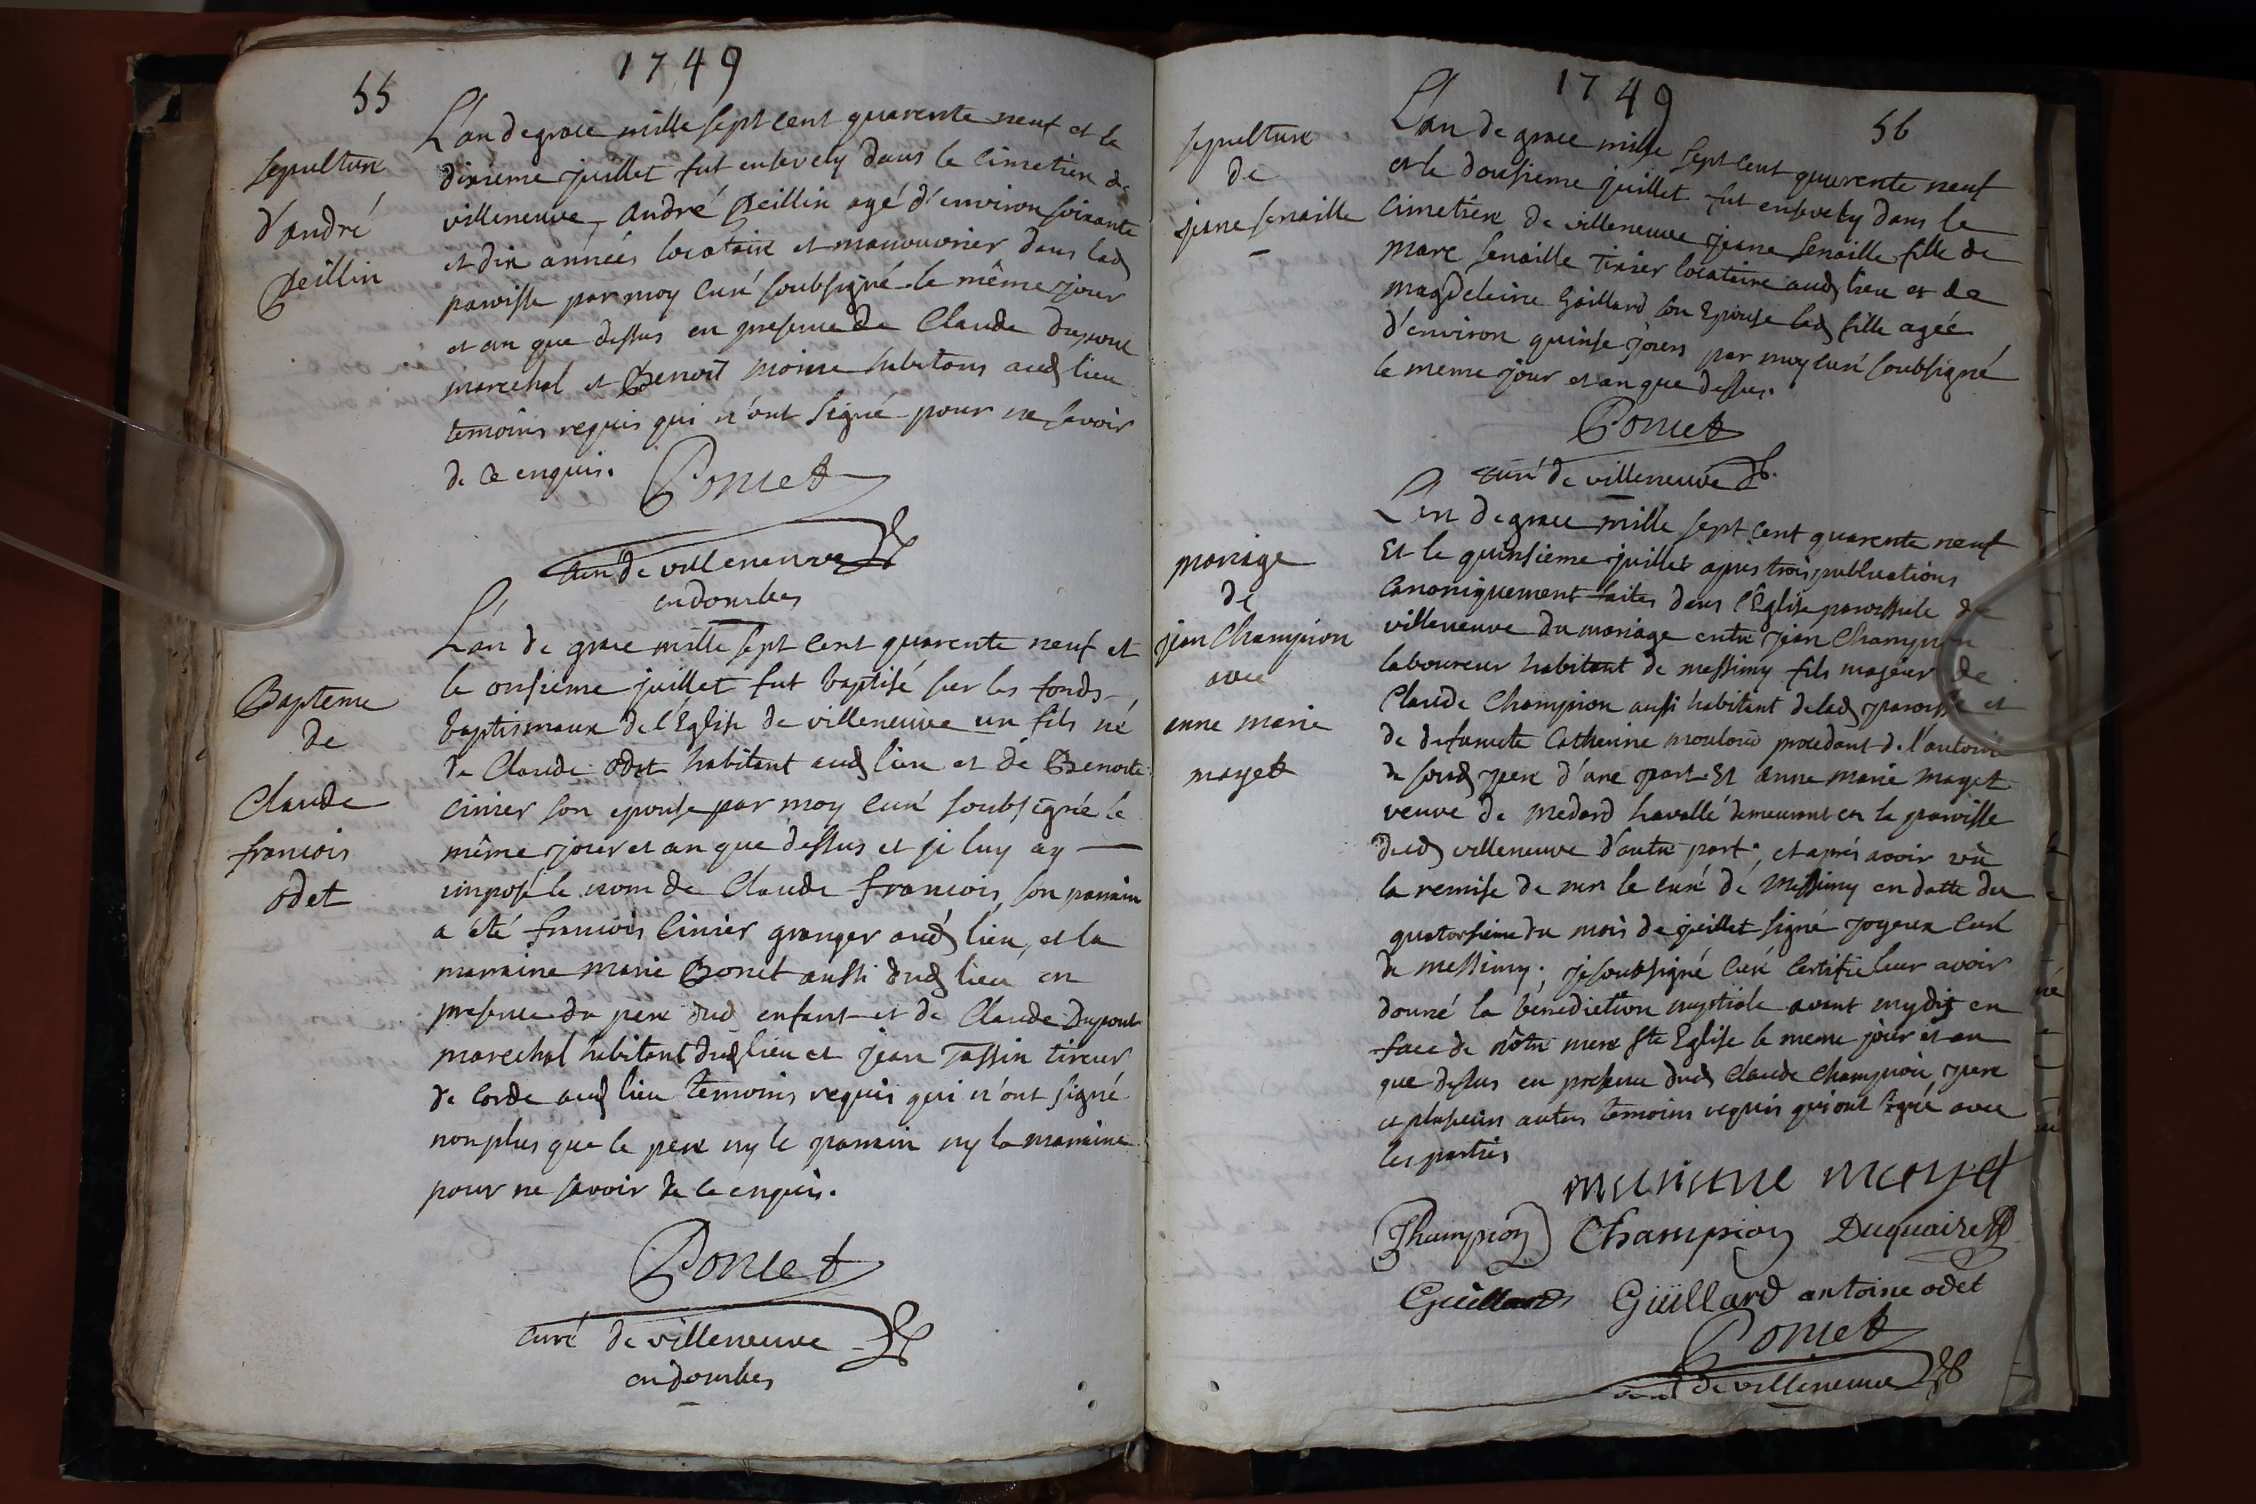 1749
55
sepulture
d'andré
peillin
L'an de grace mille sept cent quarente neuf et le
dixieme juillet fut ensevely dans le cimetiere de
villeneuve André peillin agé d'environ soixante
et dix années locataire et manouvrier dans lad
paroisse par moy curé soubsigné le même jour
et an que dessus en presence de Claude Dupont
marechal et Benoit moine habitans aud lieu
temoins requis qui n'ont signé pour ne savoir
de ce enquis.
Poncet
curé de villeneuve
en dombes
Bapteme
de
Claude
francois
odet
L'an de grace mille sept cent quarente neuf et
le onsieme juillet fut baptisé sur les fonds
baptismaux de l'Eglise de villeneuve un fils né
de Claude odet habitant aud lieu et de Benoite
cinier son epouse par moy curé soubsigné le
même jour et an que dessus et je luy ay
imposé le nom de Claude francois, son parrain
a été francois Cinier granger aud lieu, et la
marraine marie Bonet aussi dud lieu en
presence du pere dud enfant et de Claude Dupont
marechal habitant dud lieu et jean Tassin tireur
de corde aud lieu temoins requis qui n'ont signé
non plus que le pere ny le parrain ny la marraine
pour ne savoir de ce enquis.
Poncet
curé de villeneuve
en dombes
1749
56
sepulture
de
jeane senaille
L'an de grace mille sept cent quarente neuf
et le dousieme juillet fut ensevely dans le
cimetiere de villeneuve jeane senaille fille de
marc senaille Tixier locataire aud lieu et de
magdeleine Gaillard son Epouse lad fille agée
d'environ quinse jours par moy curé soubsigné
le meme jour et an que dessus.
Poncet
curé de villeneuve
mariage
de
jean Champion
avec
anne marie
mayet
L'an de grace mille sept cent quarente neuf
Et le quinsieme juillet apres trois publications
canoniquement faites dans l'Eglise paroissiale de
villeneuve du mariage entre jean Champion
laboureur habitant de messimy fils majeur de
Claude Champion aussi habitant de lad paroisse et
de defuncte Catherine procedant de l'autorité
de sond pere d'une part Et anne marie mayet
veuve de medard demeurant en la paroisse
dud villeneuve d'autre part, et aprés avoir vû
la remise de mr le curé de Messimy en datte du
quatorsieme du mois de juillet signé joyeux curé
de messimy; je soubsigné curé certifie leur avoir
donné la benediction nuptiale avant mydit en
face de nôtre mere ste Eglise le meme jour et an
que dessus en presence dud Claude Champion pere
et plusieurs autres temoins requis qui ont signé avec
les parties
mariane mayet
Champion Champion Duquaire
Guillard Güillard antoine odet
Poncet
curé de villeneuve